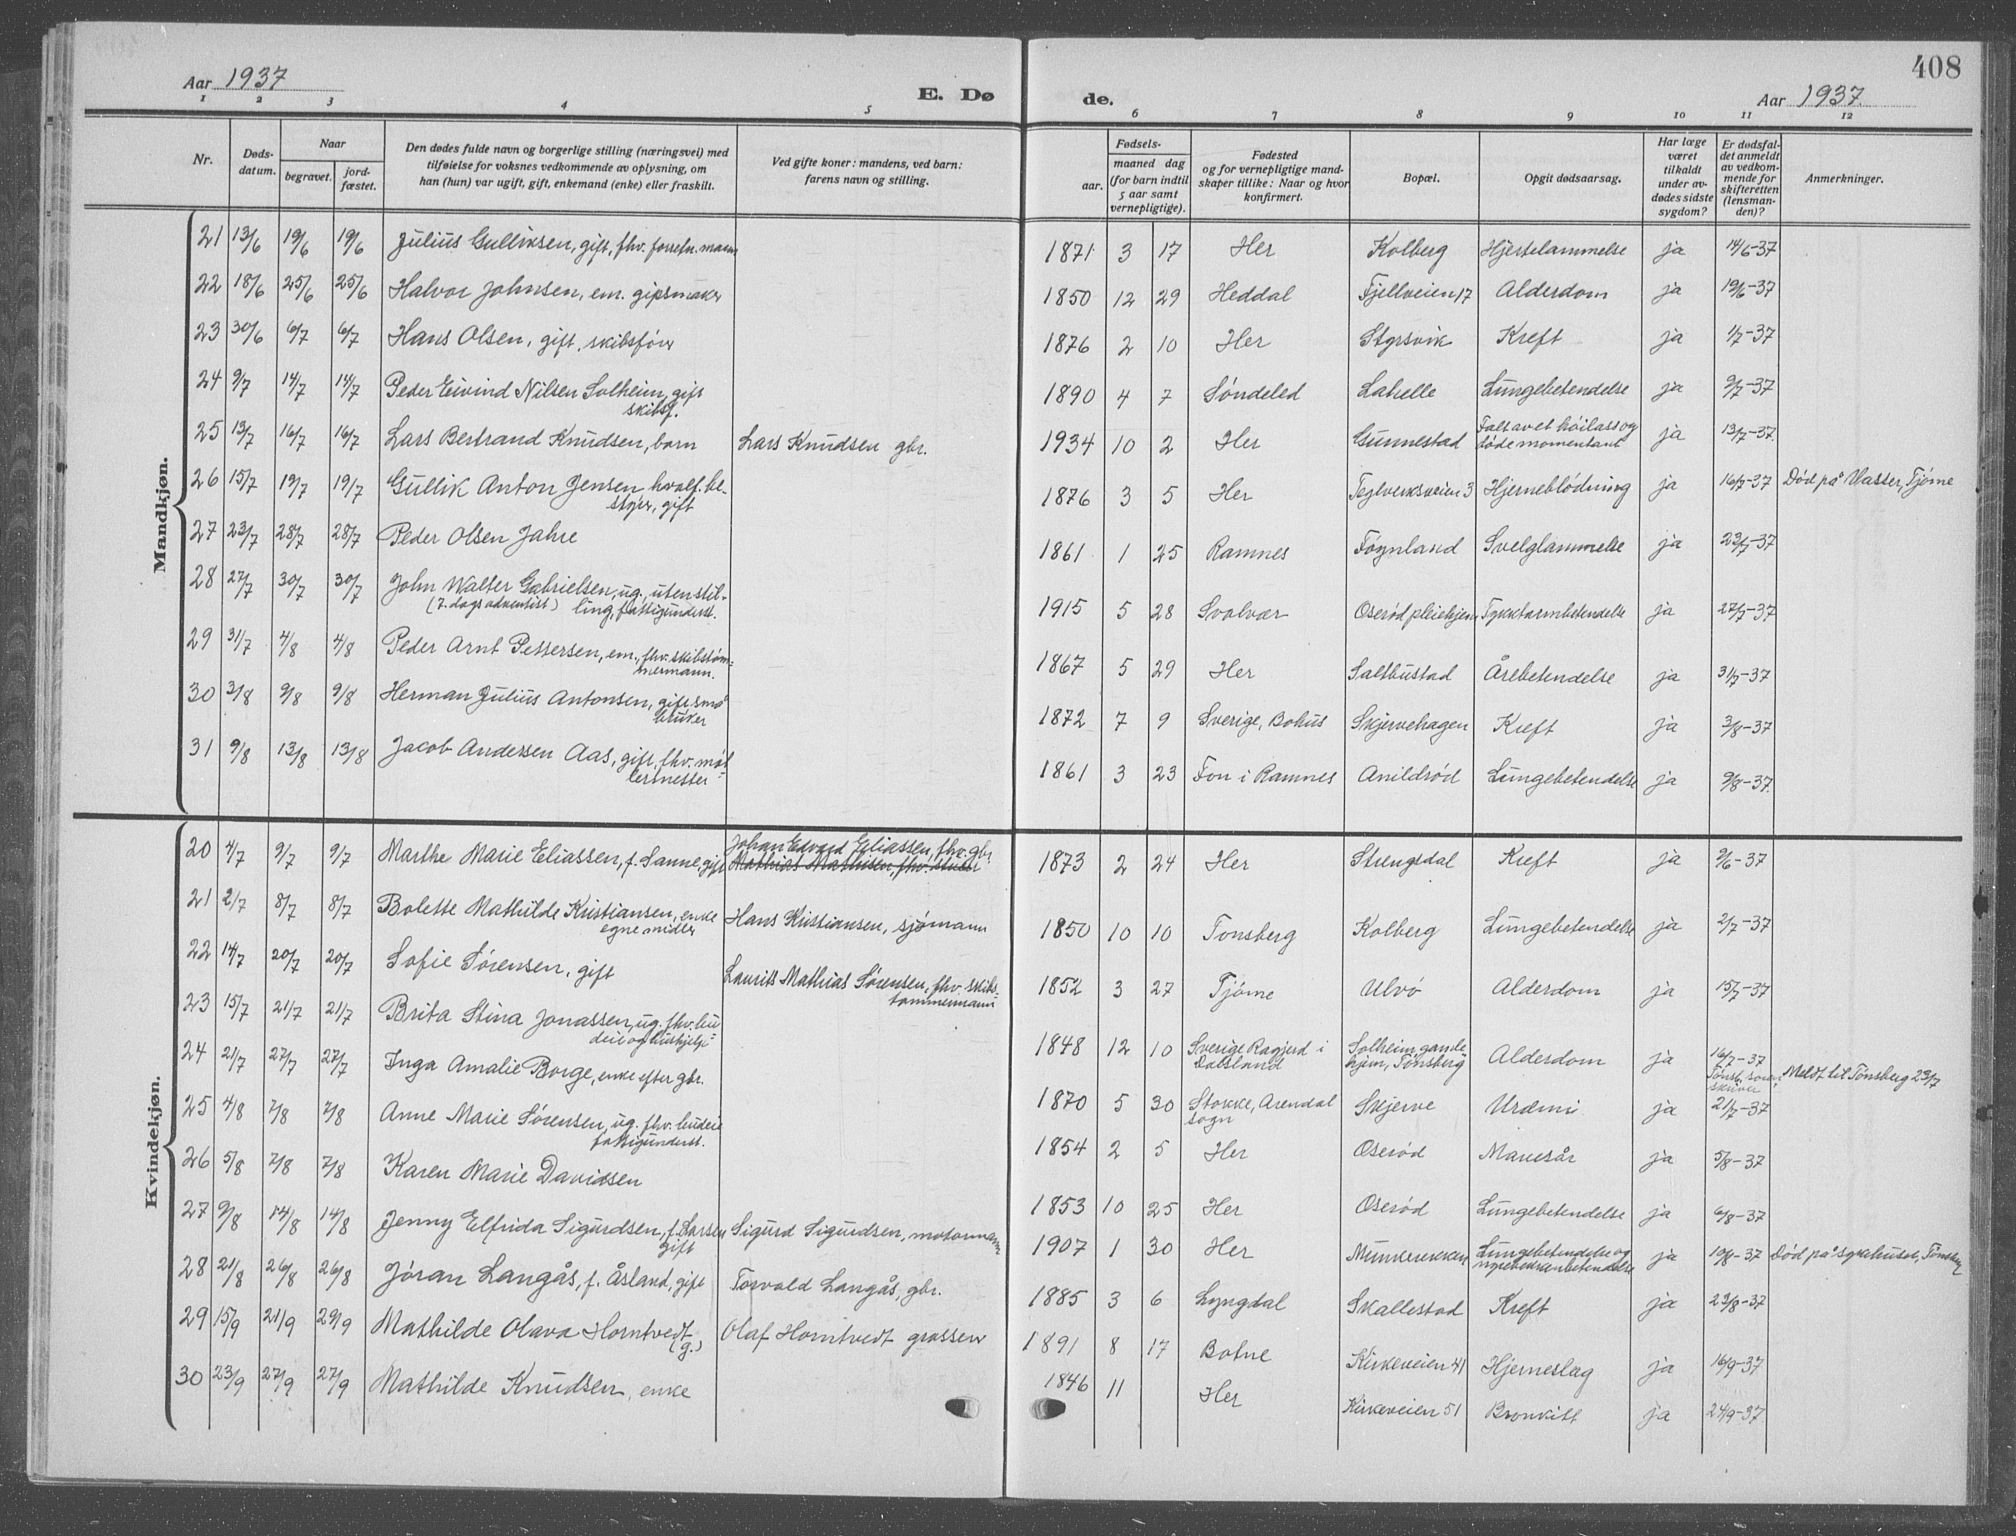 408
Aar 1937
E. Dø
de.
Aar 1937.
1 2 3 4 5 6 7 8 9 10 11 12
Nr.
Døds-
datum.
Naar
begravet.
jord-
fæstet.
Den dødes fulde navn og borgerlige stilling (næringsvei) med
tilføielse for voksnes vedkommende av oplysning, om
han (hun) var ugift, gift, enkemand (enke) eller fraskilt.
Ved gifte koner: mandens, ved barn:
farens navn og stilling.
Fødsels-
aar.
maaned dag
(for barn indtil
5 aar samt
vernepligtige).
Fødested
og for vernepligtige mand-
skaper tillike: Naar og hvor
konfirmert.
Bopæl.
Opgit dødsaarsag.
Har læge
været
tilkaldt
under av-
dødes sidste
sygdom?
Er dødsfal-
det anmeldt
av vedkom-
mende for
skifteretten
(lensman-
den)?
Anmerkninger.
Mandkjøn.
21 13/6 19/6 19/6 Julius Gulliksen, gift, fhv. forretn. mann 1871 3 17 Her Kolberg Hjertelammelse ja 14/6-37
22 18/6 25/6 25/6 Halvor Johnsen, em. gipsmaker 1850 12 29 Heddal Fjellveien 17 Alderdom ja 19/6-37
23 30/6 6/7 6/7 Hans Olsen, gift, skibsfører 1876 2 10 Her Styrsvik Kreft ja 1/7-37
24 9/7 14/7 14/7 Peder Eivind Nilsen Solheim, gift
skibsf. 1890 4 7 Søndeled Labelle Lungebetendelse ja 9/7-37
25 13/7 16/7 16/7 Lars Bertrand Knudsen, barn Lars Knudsen gbr. 1934 10 2 Her Gunnestad Falt av et høilass og
døde momentant ja 13/7-37.
26 15/7 19/7 19/7 Gullik Anton Jensen hvalf. be-
styrer, gift 1876 3 5 Her Teglverksveien 3 Hjerneblødning ja 16/7-37 Død på Vasser, Tjøme
27 23/7 28/7 28/7 Peder Olsen Jahre 1861 1 25 Ramnes Føynland Svelglammelse ja 23/7-37
28 27/7 30/7 30/7 John Walter Gabrielsen, ug., uten stil-
(7. dags adventist) ling, fattigunderst. 1915 5 28 Svolvær Oserød pleiehjem Tykktarmbetendelse ja 27/7-37
29 31/7 4/8 4/8 Peder Arnt Pettersen, em., fhv. skibstøm-
mermann. 1867 5 29 Her Saltbustad Årebetendelse ja 31/7-37
30 3/8 9/8 9/8 Herman Julius Antonsen, gift, små
bruker 1872 7 9 Sverige, Bohus Skjervehagen Kreft ja 3/8-37
31 9/8 13/8 13/8 Jacob Andersen Aas, gift, fhv. møl-
lermester 1861 3 23 Fon i Ramnes Anildrød Lungebetendelse ja 9/8-37.
Kvindekjøn.
20 4/7 9/7 9/7 Marthe Marie Eliassen, f. Sanne, gift Johan Edvard Eliassen, fhv. gbr.
Mathias Mathisen, fhv. 1873 2 24 Her Strengsdal Kreft ja 9/6-37
21 2/7 8/7 8/7 Bolette Mathilde Kristiansen, enke
egne midler Hans Kristiansen, sjømann 1850 10 10 Tønsberg Kolberg Lungebetendelse ja 2/7-37
22 14/7 20/7 20/7 Sofie Sørensen, gift Laurits Mathias Sørensen, fhv. skibs-
tømmermann 1852 3 27 Tjøme Ulvø Alderdom ja 15/7-37
23 15/7 21/7 21/7 Brita Stina Jonassen, ug. fhv. bu
deie og hushjelp 1848 12 10 Sverige i
Dalsland Solheim gamle
hjem, Tønsberg Alderdom ja 16/7-37
Tønsb. soren-
skriver
24 21/7 27/7 27/7 Inga Amalie Borge, enke efter gbr. 1870 5 30 Stokke, Arendal
sogn Skjerve Urämi ja 21/7-37 Meldt til Tønsberg 23/7
25 4/8 7/8 7/8 Anne Marie Sørensen, ug. fhv. budeie
fattigunderst. 1854 2 5 Her Oserød Mavesår ja 5/8-37
26 5/8 7/8 7/8 Karen Marie Davidsen 1853 10 25 Her Oserød Lungebetendelse ja 6/8-37
27 9/8 14/8 14/8 Jenny Elfrida Sigurdsen, f. Larsen
gift Sigurd Sigurdsen, motormann 1907 1 30 Her Munkerekken Lungebetendelse og
nyrebekkenbetendelse ja 10/8-37 Død på Sykehuset, Tønsberg
28 21/8 26/8 26/8 Jøran Langås, f. Åsland, gift Torvald Langås, gbr. 1885 3 6 Lyngdal Skallestad Kreft ja 23/8-37
29 15/9 21/9 29/9 Mathilde Olava Horntvedt
(g.) Olaf Horntvedt grosserer 1891 8 17 Botne Kirkeveien 41 Hjerneslag ja 16/9-37
30 23/9 27/9 27/9 Mathilde Knudsen, enke 1846 11 Her Kirkeveien 51 Bronkitt ja 24/9-37.